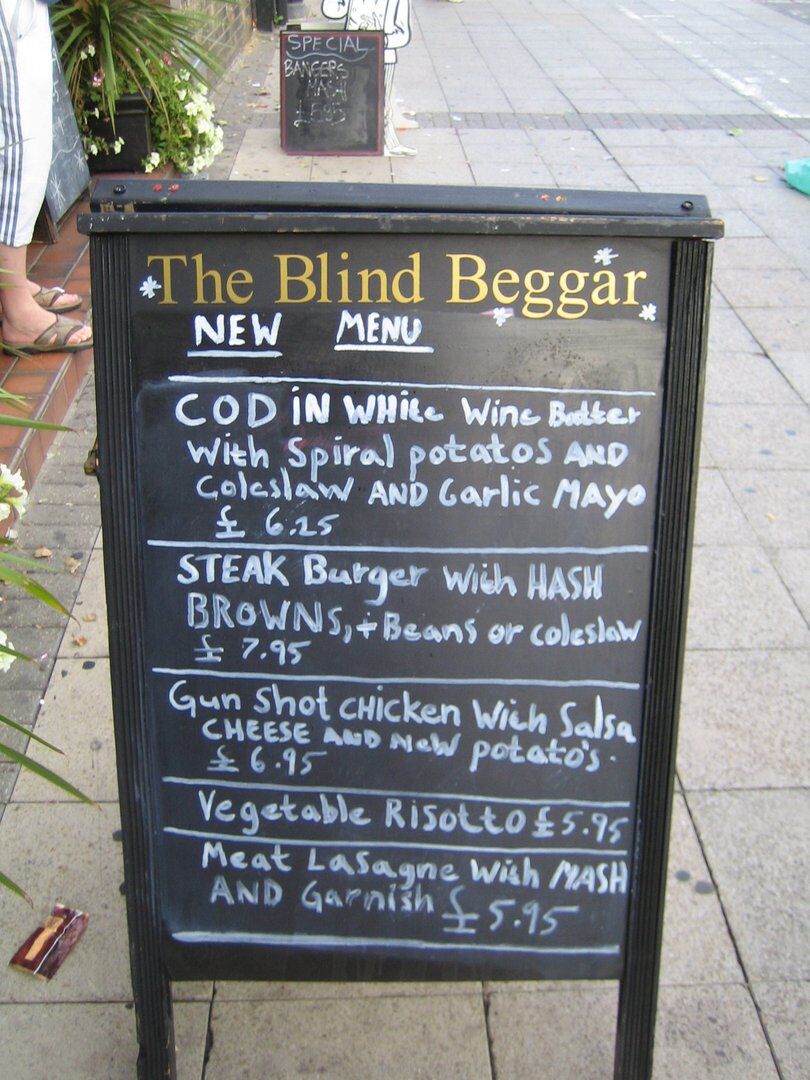 SPECIAL
BANGERS
MASH
£5.95
The Blind Beggar
NEW MENU
COD iN WHite Wine Batter
With Spiral potatos AND
Coleslaw AND Garlic MAYO
£ 6.25
STEAK Burger With HASH
BROWNS, + Beans or coleslaw
£ 7.95
Gun Shot CHicken With Salsa
CHEESE AND NeW potato's.
£ 6.95
Vegetable Risotto £5.95
Meat Lasagne With MASH
AND Garnish £5.95